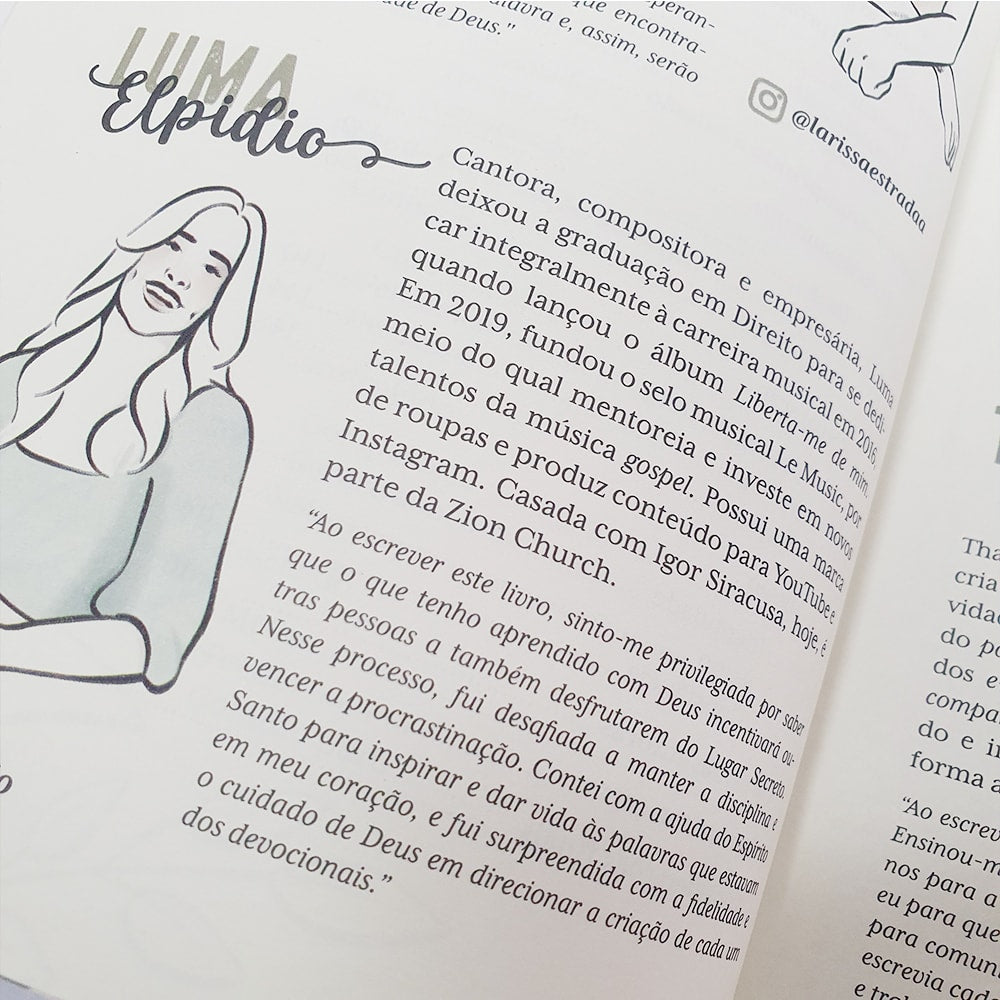 peran-
que encontra-
alavra e, assim, serão
de Deus."
@larissaestradaa
LUMA
Elpidio
Cantora, compositora e empresária, Luma
deixou a graduação em Direito para se dedi-
car integralmente à carreira musical em 2016,
quando lançou o álbum Liberta-me de mim.
Em 2019, fundou o selo musical Le Music, por
meio do qual mentoreia e investe em novos
talentos da música gospel. Possui uma marca
de roupas e produz conteúdo para YouTube e
Instagram. Casada com Igor Siracusa, hoje, é
parte da Zion Church.
"Ao escrever este livro, sinto-me privilegiada por saber
que o que tenho aprendido com Deus incentivará ou-
tras pessoas a também desfrutarem do Lugar Secreto.
Nesse processo, fui desafiada a manter a disciplina e
vencer a procrastinação. Contei com a ajuda do Espírito
Santo para inspirar e dar vida às palavras que estavam
em meu coração, e fui surpreendida com a fidelidade e
o cuidado de Deus em direcionar a criação de cada um
dos devocionais."
Tha
cria
vidad
do po
dos e
compa
do e in
forma a
"Ao escrev
Ensinou-m
nos para a
eu para que
para comun
escrevia cad
e tro